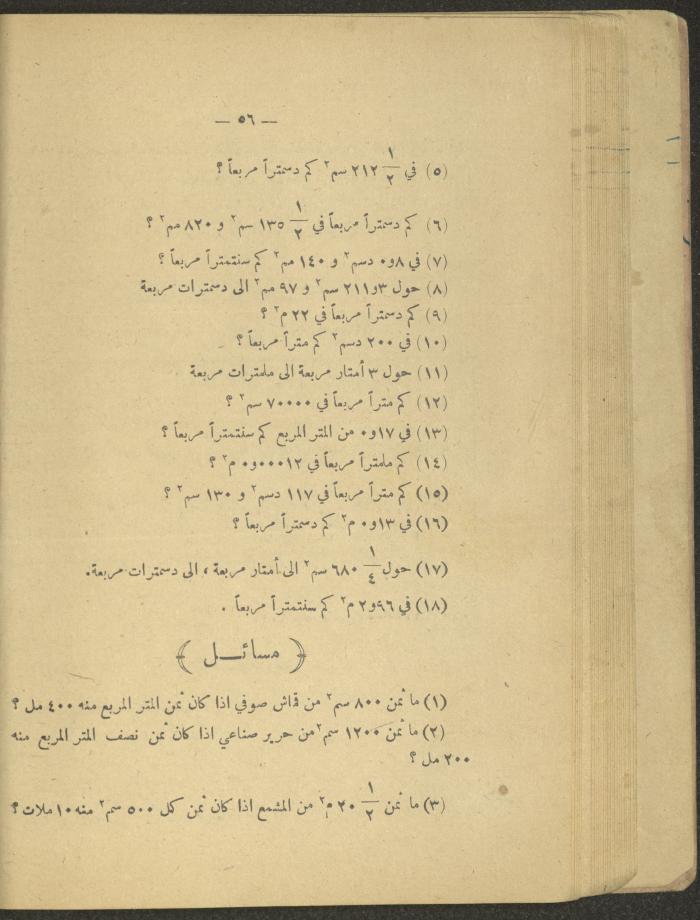 — ٥٦ —
(٥) في ٢١٢ ١/٢ سم٢ كم دسمتراً مربعاً ؟
(٦) كم دسمتراً مربعاً في ١٣٥ ١/٢ سم٢ و ٨٢٠ مم٢ ؟
(٧) في ٨و٠ دسم٢ و ١٤٠ مم٢ كم سنتمتراً مربعاً ؟
(٨) حول ٣و٢١١ سم٢ و ٩٧ مم٢ الى دسمترات مربعة
(٩) كم دسمتراً مربعاً في ٢٢ م٢ ؟
(١٠) في ٢٠٠ دسم٢ كم متراً مربعاً ؟
(١١) حول ٣ أمتار مربعة الى ملمترات مربعة
(١٢) كم متراً مربعاً في ٧٠٠٠٠ سم٢ ؟
(١٣) في ١٧و٠ من المتر المربع كم سنتمتراً مربعاً ؟
(١٤) كم ملمتراً مربعاً في ٠٠٠١٢و٠ م٢ ؟
(١٥) كم متراً مربعاً في ١١٧ دسم٢ و ١٣٠ سم٢ ؟
(١٦) في ١٣و٠ م٢ كم دسمتراً مربعاً ؟
(١٧) حول ١/٤ ٦٨٠ سم٢ الى أمتار مربعة ، الى دسمترات مربعة.
(١٨) في ٩٦و٢ م٢ كم سنتمتراً مربعاً .
﴿ مسائل ﴾
(١) ما ثمن ٨٠٠ سم٢ من قماش صوفي اذا كان ثمن المتر المربع منه ٤٠٠ مل ؟
(٢) ما ثمن ١٢٠٠ سم٢ من حرير صناعي اذا كان ثمن نصف المتر المربع منه
٢٠٠ مل ؟
(٣) ما ثمن ١/٢ ٢٠ م٢ من المشمع اذا كان ثمن كل ٥٠٠ سم٢ منه ١٠ ملات ؟